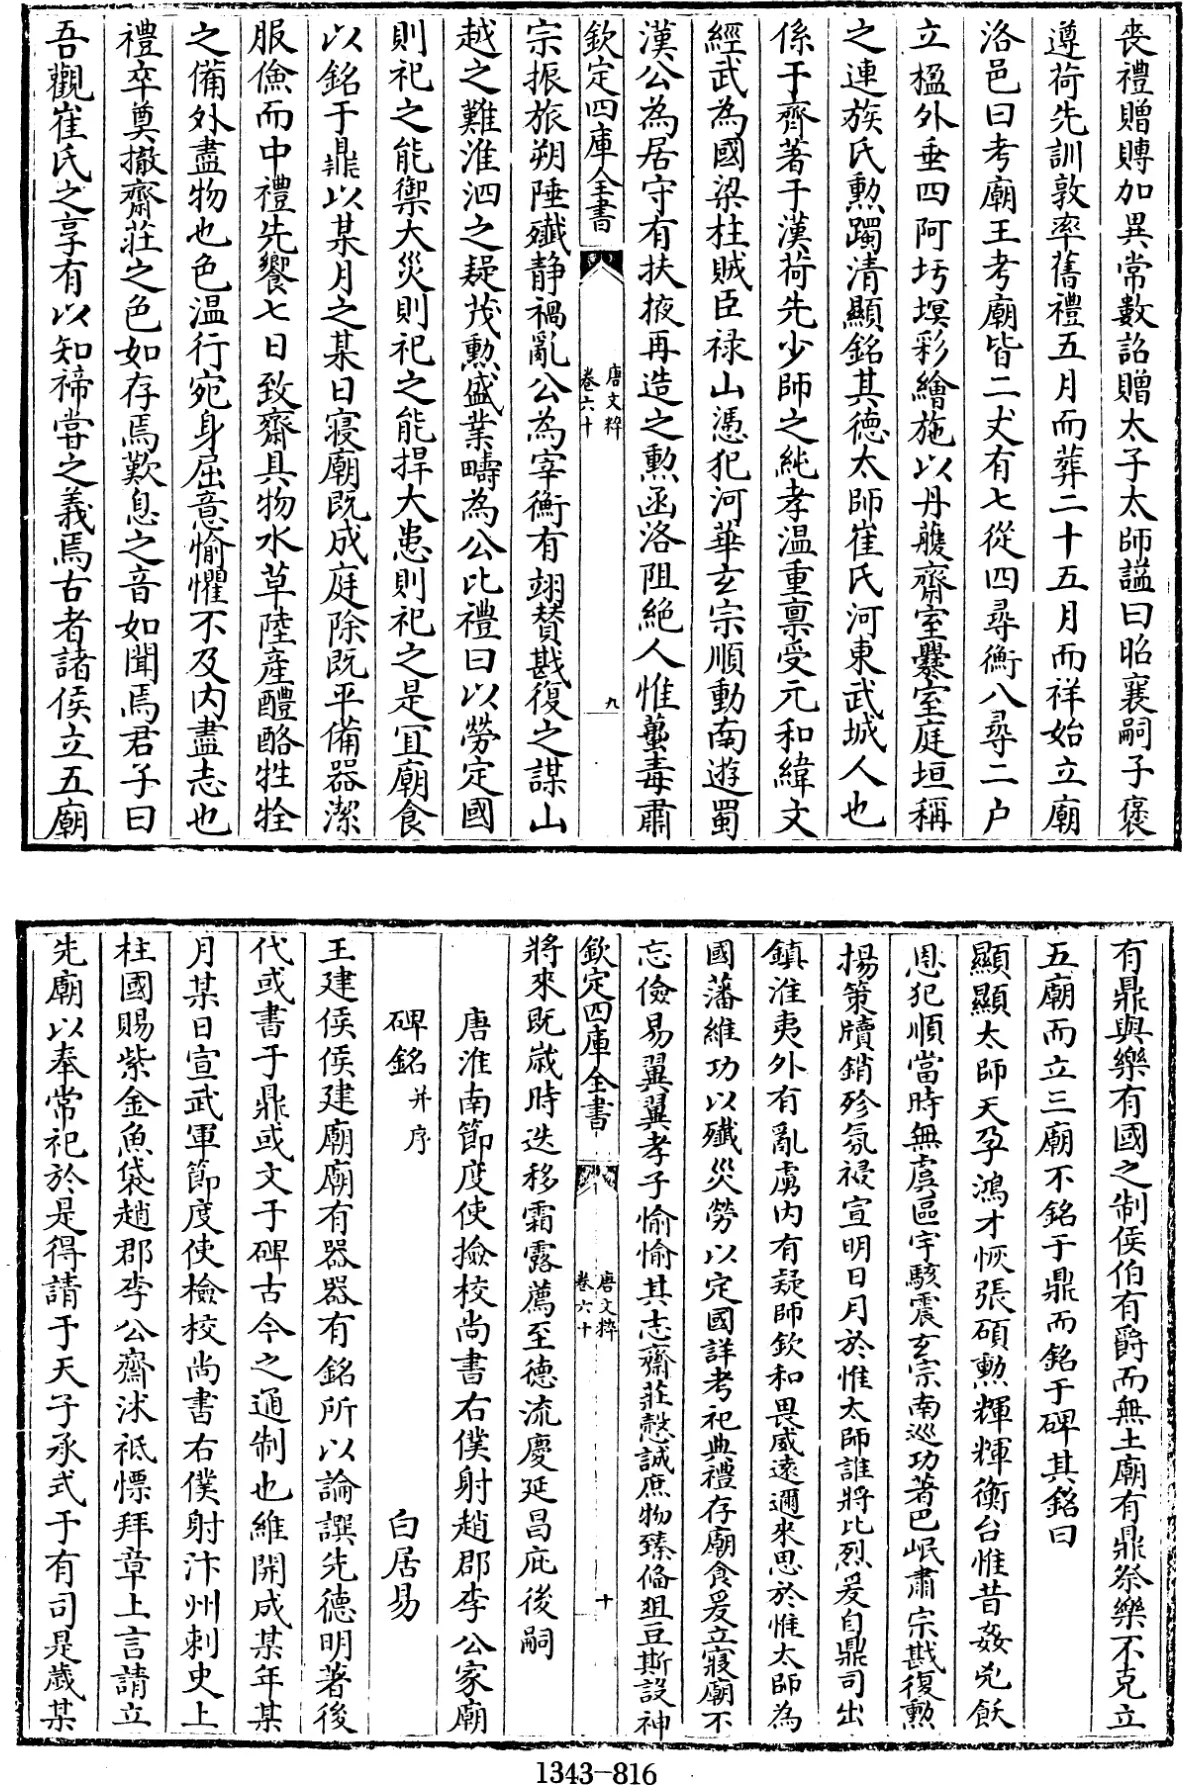 喪禮贈賻加異常數詔贈太子太師謚曰昭襄嗣子褒
遵荷先訓敦率舊禮五月而葬二十五月而祥始立廟
洛邑曰考廟王考廟皆二丈有七從四尋衡八尋二户
立楹外垂四阿圬墁彩繪施以丹雘齋室爨室庭垣稱
之連族氏勲躅清顯銘其德太師崔氏河東武城人也
係于齊著于漢荷先少師之純孝温重禀受元和緯文
經武為國梁柱賊臣禄山憑犯河華玄宗順動南遊蜀
漢公為居守有扶掖再造之勲函洛阻絶人惟蠆毒肅
欽定四庫全書
唐文粹
卷六十
九
宗振旅朔陲殱静禍亂公為宰衡有翊賛戡復之謀山
越之難淮泗之疑茂勲盛業疇為公比禮曰以勞定國
則祀之能禦大災則祀之能捍大患則祀之是宜廟食
以銘于鼎以某月之某日寝廟既成庭除既平備器潔
服儉而中禮先饗七日致齋具物水草陸産醴酪牲牷
之備外盡物也色温行宛身屈意愉懼不及内盡志也
禮卒奠撤齋莊之色如存焉歎息之音如聞焉君子曰
吾觀崔氏之享有以知禘嘗之義焉古者諸侯立五廟
有鼎與樂有國之制侯伯有爵而無土廟有鼎祭樂不克立
五廟而立三廟不銘于鼎而銘于碑其銘曰
顯顯太師天孕鴻才恢張碩勲輝輝衡台惟昔姦兇飫
恩犯順當時無虞區宇駭震玄宗南巡功著巴岷肅宗戡復勲
揚策牘銷殄氛祲宣明日月於惟太師誰將比烈爰自鼎司出
鎮淮夷外有亂虜内有疑師欽和畏威遠邇來思於惟太師為
國藩維功以殱災勞以定國詳考祀典禮存廟食爰立寢廟不
忘儉易翼翼孝子愉愉其志齋莊慤誠庶物臻俻俎豆斯設神
欽定四庫全書
唐文粹
卷六十
十
將來既嵗時迭移霜露薦至德流慶延昌庇後嗣
唐淮南節度使撿校尚書右僕射趙郡李公家廟
碑銘并序 白居易
王建侯侯建廟廟有器器有銘所以論譔先德明著後
代或書于鼎或文于碑古今之通制也維開成某年某
月某日宣武軍節度使檢校尚書右僕射汴州刺史上
柱國賜紫金魚袋趙郡李公齋沐祗慓拜章上言請立
先廟以奉常祀於是得請于天子承式于有司是嵗某
1343-816